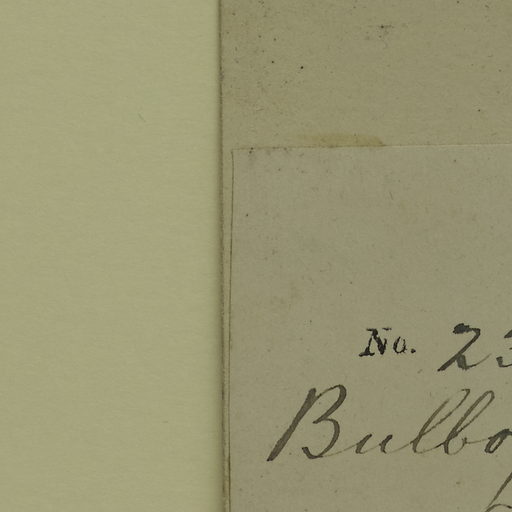 No. 23
Bulbo